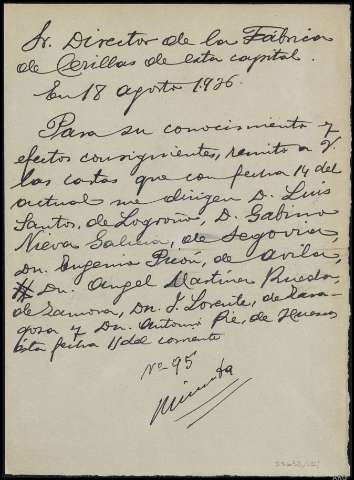 Sr. Director de la Fábrica
de Cerillas de esta capital.
En 18 agosto 1.936.
Para su conocimiento y
efectos consiguientes, remito a V.
las cartas que con fecha 14 del
actual me dirigen D. Luis
Santos, de Logroño, D. Gabino
Nieva Galicia, de Segovia,
Dn. Eugenio Picón, de Avila,
Dn. Angel Martínez Rueda,
de Zamora, Dn. J. Lorente, de Zara-
goza y Dn. Antonio Pie, de Huesca
ésta fecha 11 del corriente
Nº 95
Minuta